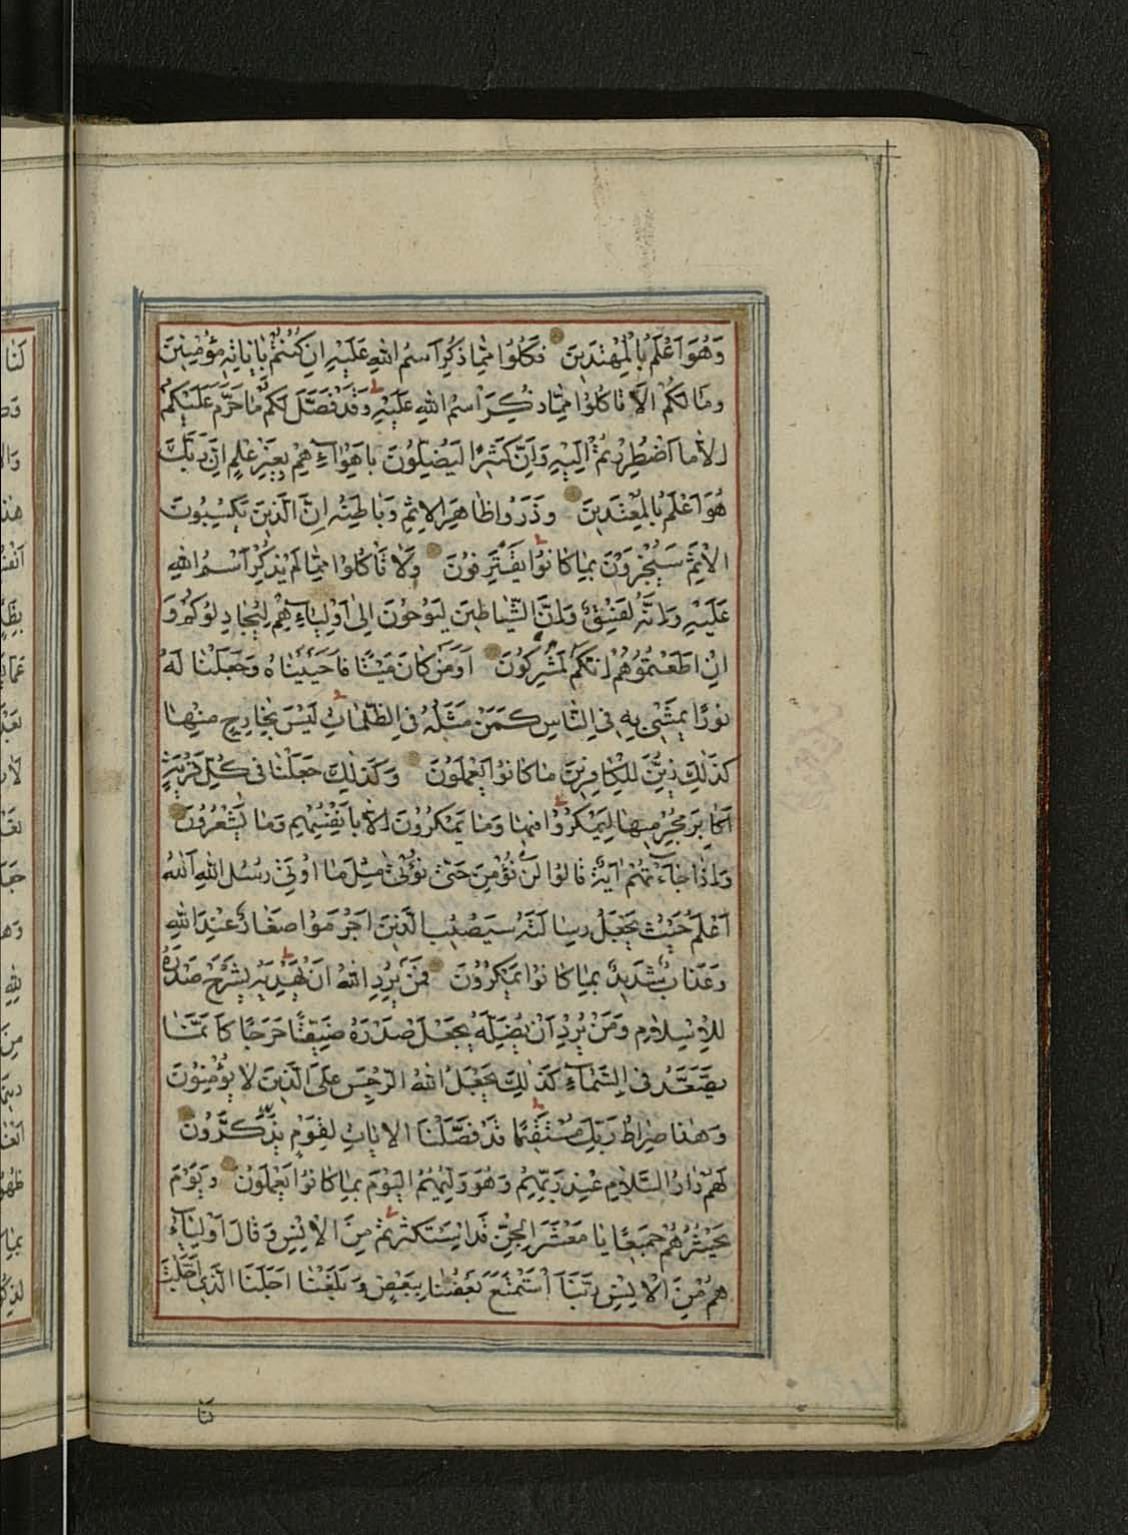 وَهُوَ اَعْلَمُ بِالْمُهْتَدِينَ فَكُلُوا مِمَّا ذُكِرَ اسْمُ اللهِ عَلَيْهِ اِنْ كُنْتُمْ بِاٰيَاتِهِ مُؤْمِنِينَ
وَمَا لَكُمْ اَلَّا تَاْكُلُوا مِمَّا ذُكِرَ اسْمُ اللهِ عَلَيْهِ وَقَدْ فَصَّلَ لَكُمْ مَا حَرَّمَ عَلَيْكُمْ
اِلَّا مَا اضْطُرِرْتُمْ اِلَيْهِ وَاِنَّ كَثِيرًا لَيُضِلُّونَ بِاَهْوَائِهِمْ بِغَيْرِ عِلْمٍ اِنَّ رَبَّكَ
هُوَ اَعْلَمُ بِالْمُعْتَدِينَ وَذَرُوا ظَاهِرَ الْاِثْمِ وَبَاطِنَهُ اِنَّ الَّذِينَ يَكْسِبُونَ
الْاِثْمَ سَيُجْزَوْنَ بِمَا كَانُوا يَقْتَرِفُونَ وَلَا تَاْكُلُوا مِمَّا لَمْ يُذْكَرِ اسْمُ اللهِ
عَلَيْهِ وَاِنَّهُ لَفِسْقٌ وَاِنَّ الشَّيَاطِينَ لَيُوحُونَ اِلٰى اَوْلِيَائِهِمْ لِيُجَادِلُوكُمْ وَ
اِنْ اَطَعْتُمُوهُمْ اِنَّكُمْ لَمُشْرِكُونَ اَوَمَنْ كَانَ مَيْتًا فَاَحْيَيْنَاهُ وَجَعَلْنَا لَهُ
نُورًا يَمْشِي بِهِ فِي النَّاسِ كَمَنْ مَثَلُهُ فِي الظُّلُمَاتِ لَيْسَ بِخَارِجٍ مِنْهَا
كَذٰلِكَ زُيِّنَ لِلْكَافِرِينَ مَا كَانُوا يَعْمَلُونَ وَكَذٰلِكَ جَعَلْنَا فِي كُلِّ قَرْيَةٍ
اَكَابِرَ مُجْرِمِيهَا لِيَمْكُرُوا فِيهَا وَمَا يَمْكُرُونَ اِلَّا بِاَنْفُسِهِمْ وَمَا يَشْعُرُونَ
وَاِذَا جَاءَتْهُمْ اٰيَةٌ قَالُوا لَنْ نُؤْمِنَ حَتّٰى نُؤْتٰى مِثْلَ مَا اُوتِيَ رُسُلُ اللهِ اَللهُ
اَعْلَمُ حَيْثُ يَجْعَلُ رِسَالَتَهُ سَيُصِيبُ الَّذِينَ اَجْرَمُوا صَغَارٌ عِنْدَ اللهِ
وَعَذَابٌ شَدِيدٌ بِمَا كَانُوا يَمْكُرُونَ فَمَنْ يُرِدِ اللهُ اَنْ يَهْدِيَهُ يَشْرَحْ صَدْرَهُ
لِلْاِسْلَامِ وَمَنْ يُرِدْ اَنْ يُضِلَّهُ يَجْعَلْ صَدْرَهُ ضَيِّقًا حَرَجًا كَاَنَّمَا
يَصَّعَّدُ فِي السَّمَاءِ كَذٰلِكَ يَجْعَلُ اللهُ الرِّجْسَ عَلَى الَّذِينَ لَا يُؤْمِنُونَ
وَهٰذَا صِرَاطُ رَبِّكَ مُسْتَقِيمًا قَدْ فَصَّلْنَا الْاٰيَاتِ لِقَوْمٍ يَذَّكَّرُونَ
لَهُمْ دَارُ السَّلَامِ عِنْدَ رَبِّهِمْ وَهُوَ وَلِيُّهُمُ الْيَوْمَ بِمَا كَانُوا يَعْمَلُونَ وَيَوْمَ
يَحْشُرُهُمْ جَمِيعًا يَا مَعْشَرَ الْجِنِّ قَدِ اسْتَكْثَرْتُمْ مِنَ الْاِنْسِ وَقَالَ اَوْلِيَاؤُ
هُمْ مِنَ الْاِنْسِ رَبَّنَا اسْتَمْتَعَ بَعْضُنَا بِبَعْضٍ وَبَلَغْنَا اَجَلَنَا الَّذِي اَجَّلْتَ
نَا